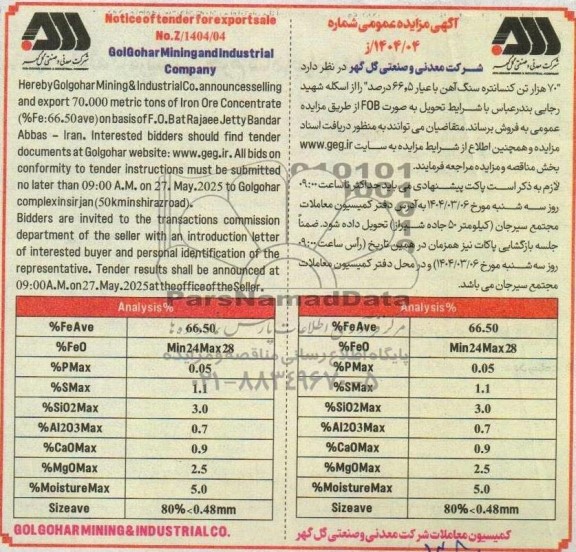 Notice of tender for export sale
No.Z/1404/04
GolGohar Mining and Industrial
Company
Hereby Golgohar Mining & Industrial Co. announces selling
and export 70.000 metric tons of Iron Ore Concentrate
(%Fe:66.50 ave) on basis of F.O.B at Rajaee Jetty Bandar
Abbas – Iran. Interested bidders should find tender
documents at Golgohar website: www.geg.ir. All bids on
conformity to tender instructions must be submitted
no later than 09:00 A.M. on 27. May.2025 to Golgohar
complex in sirjan (50km in shiraz road).
Bidders are invited to the transactions commission
department of the seller with an introduction letter
of interested buyer and personal identification of the
representative. Tender results shall be announced at
09:00 A.M. on 27. May. 2025 at the office of the Seller.
Analysis%
%Fe Ave 66.50
%FeO Min24Max28
%P Max 0.05
%S Max 1.1
%SiO2 Max 3.0
%Al2O3 Max 0.7
%CaO Max 0.9
%MgO Max 2.5
%Moisture Max 5.0
Size ave 80%<0.48mm
GOLGOHAR MINING & INDUSTRIAL CO.
آگهی مزایده عمومی شماره
۱۴۰۴/۰۴/ز
شرکت معدنی و صنعتی گل گهر در نظر دارد
"۷۰ هزار تن کنسانتره سنگ آهن با عیار ۶۶,۵ درصد" را از اسکله شهید
رجایی بندرعباس با شرایط تحویل به صورت FOB از طریق مزایده
عمومی به فروش برساند. متقاضیان می توانند به منظور دریافت اسناد
مزایده و همچنین اطلاع از شرایط مزایده به سایت www.geg.ir
بخش مناقصه و مزایده مراجعه فرمایند.
لازم به ذکر است پاکت پیشنهادی می باید حداکثر تا ساعت ۰۹:۰۰
روز سه شنبه مورخ ۱۴۰۴/۰۳/۰۶ به آدرس دفتر کمیسیون معاملات
مجتمع سیرجان (کیلومتر ۵۰ جاده شیراز) تحویل داده شود. ضمناً
جلسه بازگشایی پاکات نیز همزمان در همین تاریخ (رأس ساعت ۰۹:۰۰
روز سه شنبه مورخ ۱۴۰۴/۰۳/۰۶) و در محل دفتر کمیسیون معاملات
مجتمع سیرجان می باشد.
Analysis%
%Fe Ave 66.50
%FeO Min24Max28
%P Max 0.05
%S Max 1.1
%SiO2 Max 3.0
%Al2O3 Max 0.7
%CaO Max 0.9
%MgO Max 2.5
%Moisture Max 5.0
Size ave 80%<0.48mm
کمیسیون معاملات شرکت معدنی و صنعتی گل گهر
ParsNamadData
پایگاه اطلاع رسانی مناقصه و مزایده
۰۲۱-۸۸۳۴۹۶۷۰-۵